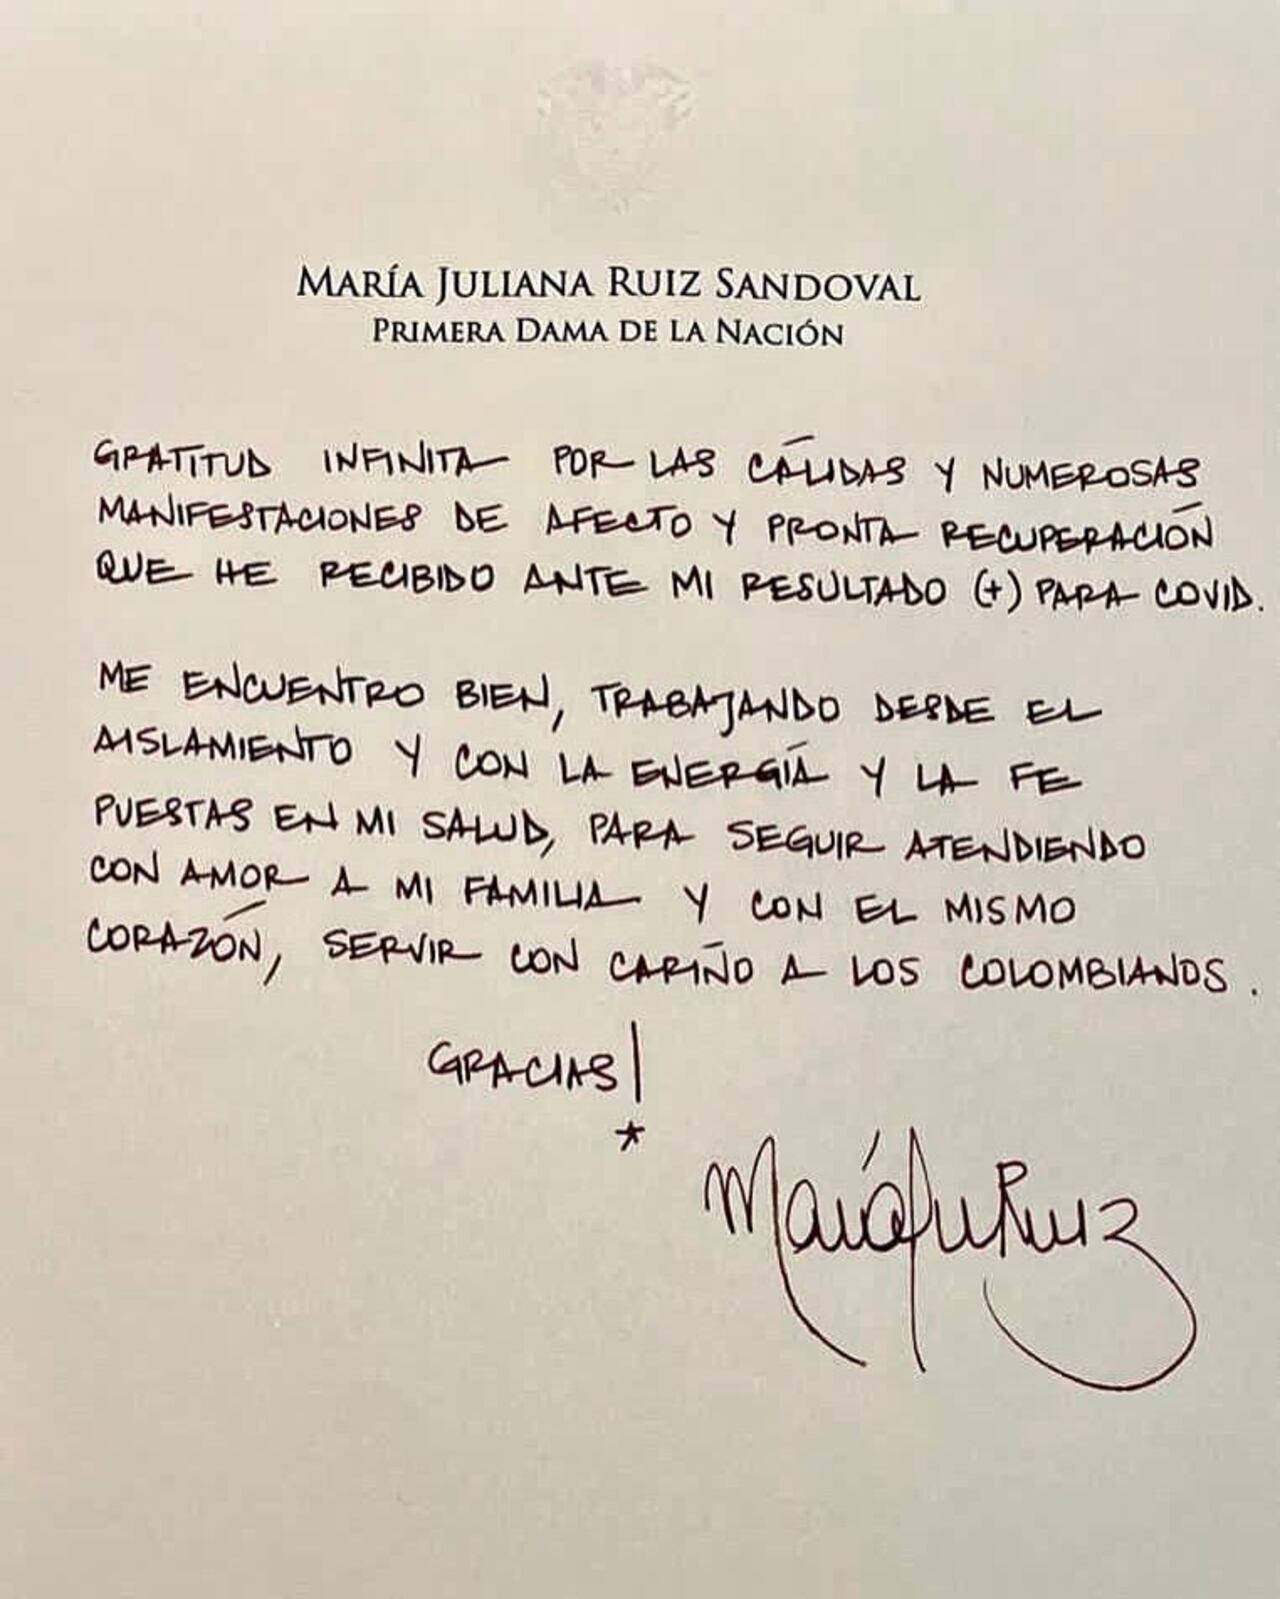 MARÍA JULIANA RUIZ SANDOVAL
PRIMERA DAMA DE LA NACIÓN
GRATITUD INFINITA POR LAS CÁLIDAS Y NUMEROSAS
MANIFESTACIONES DE AFECTO Y PRONTA RECUPERACIÓN
QUE HE RECIBIDO ANTE MI RESULTADO (+) PARA COVID.
ME ENCUENTRO BIEN, TRABAJANDO DESDE EL
AISLAMIENTO Y CON LA ENERGÍA Y LA FE
PUESTAS EN MI SALUD, PARA SEGUIR ATENDIENDO
CON AMOR A MI FAMILIA Y CON EL MISMO
CORAZÓN, SERVIR CON CARIÑO A LOS COLOMBIANOS.
GRACIAS!
MaríaJuRuiz